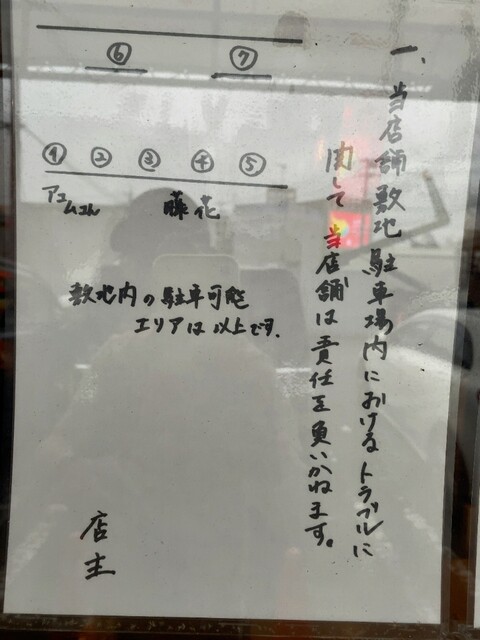 一、当店舗敷地駐車場内におけるトラブルに
関して当店舗は責任を負いかねます。
⑥ ⑦
① ② ③ ④ ⑤
アコムコん 藤花
敷地内の駐車可能
エリアは以上です.
店主